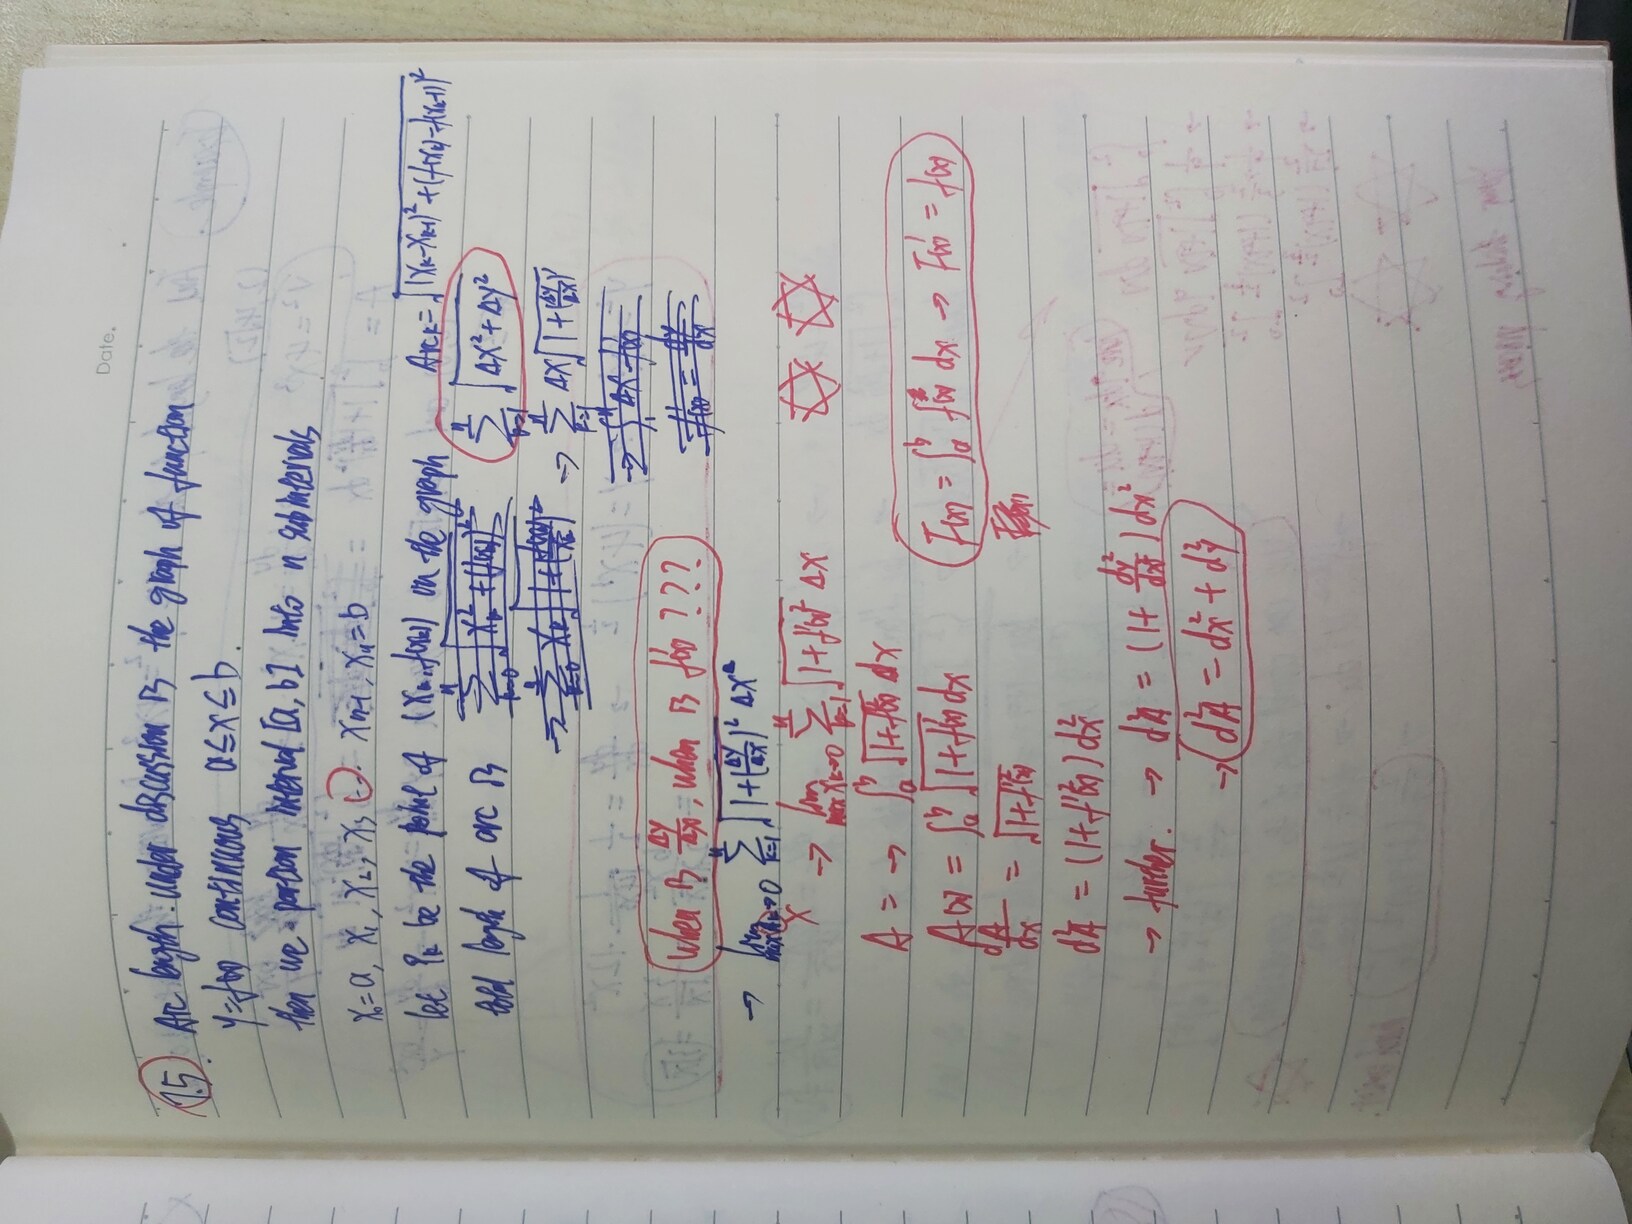 Date.
7.5. Arc length. under discussion is the graph of function
y=f(x) continuous a≤x≤b.
then we partion interval [a, b] into n subintervals
x₀=a, x₁, x₂, x₃ ... xₙ₋₁, xₙ=b
let Pₖ be the point of (xₖ, f(xₖ)) on the graph Arcₖ = √((xₖ-xₖ₋₁)²+(f(xₖ)-f(xₖ₋₁))²)
total length of arc is ∑ₖ₌₁ⁿ √(Δx²+Δy²)
→ ∑ₖ₌₁ⁿ Δx√(1+(Δy/Δx)²
When is Δy/Δx, when is f'(x) ???
→ lim ∑ₖ₌₁ⁿ √(1+(Δy/Δx)²) Δx
x
→ lim max xₖ→0 ∑ₖ₌₁ⁿ √(1+f'(x)²) Δx
A = → ∫ₐᵇ √(1+f'(x)²) dx
A(x) = ∫ₐᵇ √(1+f'(x)) dx F(x) = ∫ₐᵇ f(x) dx → F'(x) = f(x)
dA/dx = √(1+f'²(x))
d²A = (1+f'²(x)) d²x
→ further. → d²A = (1+ dy²/dx²) dx²
→ d²A = dx² + d²y